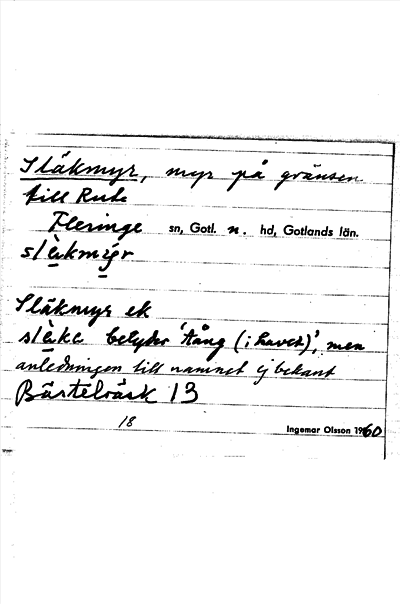 Släkmyr, myr på gränsen
till Rute
Fleringe sn, Gotl. n. hd, Gotlands län.
slèkmýr
Släkmyr ek
slèkɛ betyder 'tång (i havet)', men
anledningen till namnet ej bekant
Bästeträsk 13
18
Ingemar Olsson 1960